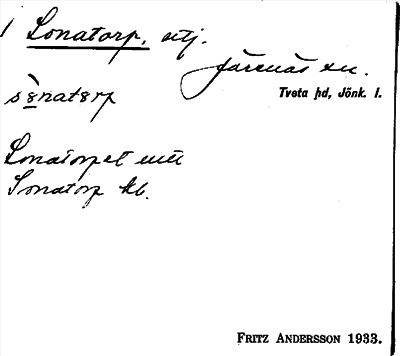 1 Sonatorp, utj.
Järsnäs sn.
Tveta hd, Jönk. l.
sònatorp
Sonatorpet
Sonatorp kb.
FRITZ ANDERSSON 1933.